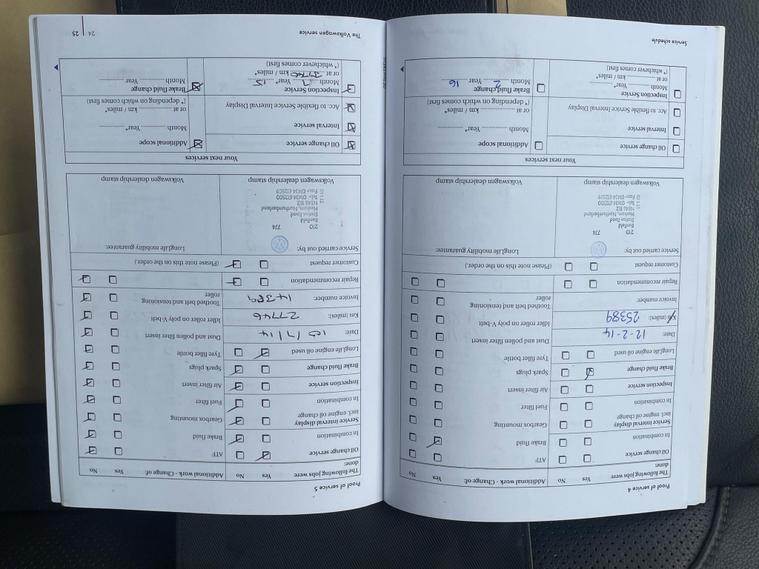 Proof of service 4
The following jobs were done: Yes No Additional work - Change of: Yes No
Oil change service ATF
In combination Brake fluid
Service interval display
incl. engine oil change Gearbox mounting
In combination Fuel filter
Inspection service Air filter insert
Brake fluid change Spark plugs
LongLife engine oil used Tyre filler bottle
Date: 12-2-14 Dust and pollen filter insert
Km (miles): 25389 Idler roller on poly V-belt
Invoice number: Toothed belt and tensioning
roller
Repair recommendation
Customer request (Please note this on the order.)
Service carried out by: LongLife mobility guarantee:
210 774
Station Road
Hexham, Northumberland
Volkswagen dealership stamp Volkswagen dealership stamp
Your next services
Oil change service Additional scope
Interval service Month Year*
Acc. to flexible Service Interval Display or at km / miles*
(* depending on which comes first)
Inspection Service Brake fluid change
Month Year* Month 2 Year 16
or at km / miles*
(* whichever comes first)
Service schedule
Proof of service 5
The following jobs were done: Yes No Additional work - Change of: Yes No
Oil change service ATF
In combination Brake fluid
Service interval display
incl. engine oil change Gearbox mounting
In combination Fuel filter
Inspection service Air filter insert
Brake fluid change Spark plugs
LongLife engine oil used Tyre filler bottle
Date: 10/7/14 Dust and pollen filter insert
Km (miles): 27746 Idler roller on poly V-belt
Invoice number: Toothed belt and tensioning
roller
Repair recommendation
Customer request (Please note this on the order.)
Service carried out by: LongLife mobility guarantee:
210 774
Station Road
Hexham, Northumberland
Volkswagen dealership stamp Volkswagen dealership stamp
Your next services
Oil change service Additional scope
Interval service Month Year*
Acc. to flexible Service Interval Display or at km / miles*
(* depending on which comes first)
Inspection Service Brake fluid change
Month 7 Year* 15 Month Year
or at 37746 km / miles*
(* whichever comes first)
The Volkswagen service 24 25